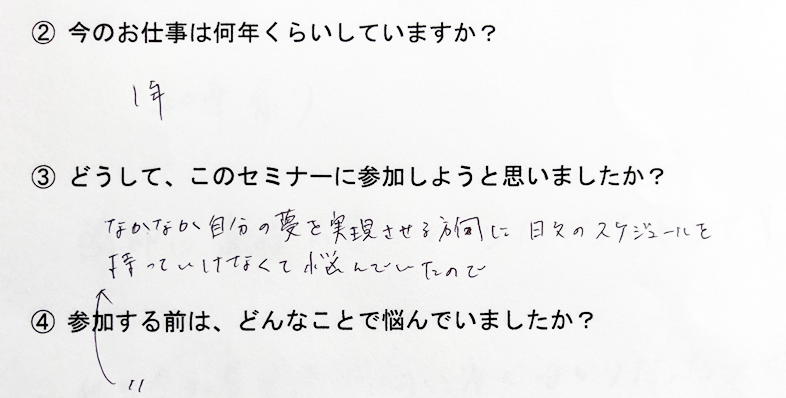 ② 今のお仕事は何年くらいしていますか？
1年
③ どうして、このセミナーに参加しようと思いましたか？
なかなか自分の夢を実現させる方向に日々のスケジュールを
持っていけなくて悩んでいたので
④ 参加する前は、どんなことで悩んでいましたか？
〃